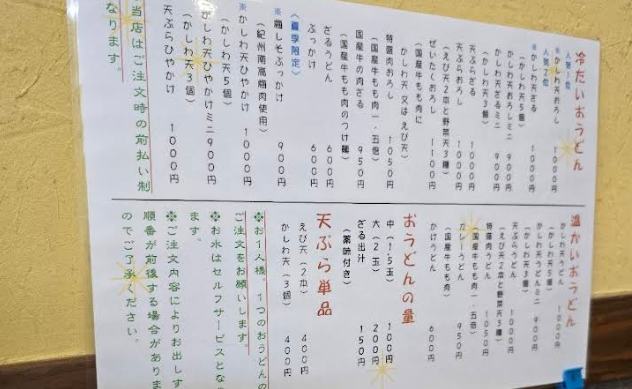 冷たいおうどん
人気1位
※かしわ天おろし 1000円
(かしわ天5個)
人気2位
※かしわ天ざる 1000円
(かしわ天5個)
かしわ天おろしミニ 900円
かしわ天ざるミニ 900円
(かしわ天3個)
天ぷらざる 1000円
天ぷらおろし 1000円
(えび天2本と野菜天3種)
ぜいたくおろし 1100円
(国産牛もも肉に
かしわ天又はえび天)
特選肉おろし 1050円
(国産牛もも肉一.五倍)
国産牛の肉ざる 950円
(国産牛もも肉のつけ麺)
ざるうどん 600円
ぶっかけ 600円
(夏季限定)
※梅しそぶっかけ 900円
(紀州南高梅肉使用)
※かしわ天ひやかけ 1000円
(かしわ天5個)
かしわ天ひやかけミニ 900円
(かしわ天3個)
天ぷらひやかけ 1000円
当店はご注文時の前払い制
なります。
温かいおうどん
かしわ天うどん 1000円
(かしわ天5個)
かしわ天うどんミニ 900円
(かしわ天3個)
天ぷらうどん 1000円
(えび天2本と野菜天3種)
特選肉うどん 1050円
(国産牛もも肉一.五倍)
カレーうどん 950円
(国産牛もも肉)
かけうどん 600円
おうどんの量
中(1.5玉) 100円
大(2玉) 200円
ざる出汁 150円
(薬味付き)
天ぷら単品
えび天(2本) 400円
かしわ天(3個) 400円
※お1人様、1つのおうどんの
ご注文をお願いします。
※お水はセルフサービスとな
ます。
※ご注文内容によりお出しす
順番が前後する場合がありま
のでご了承ください。